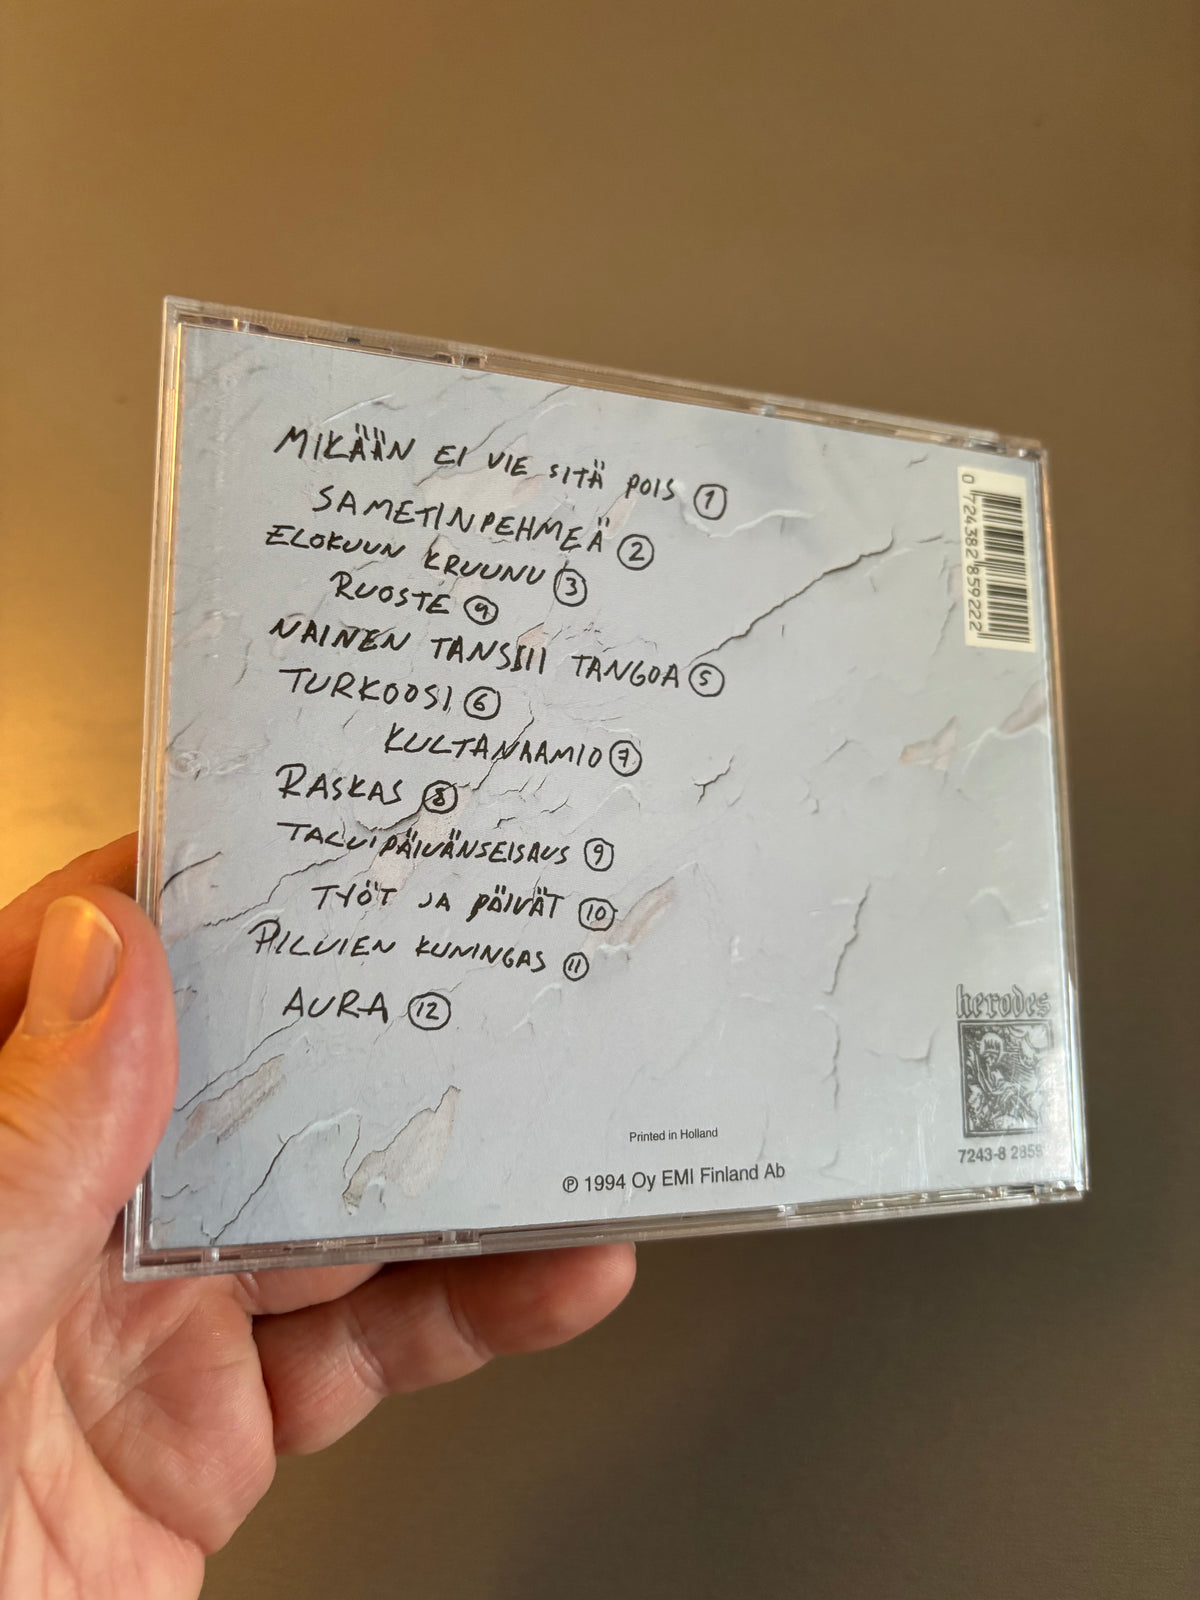 MIKÄÄN EI VIE SITÄ POIS 1
SAMETINPEHMEÄ 2
ELOKUUN KRUUNU 3
RUOSTE 4
NAINEN TANSSII TANGOA 5
TURKOOSI 6
KULTANAAMIO 7
RASKAS 8
TALVIPÄIVÄNSEISAUS 9
TYÖT JA PÄIVÄT 10
PILVIEN KUNINGAS 11
AURA 12
0 724382 859222
herodes
7243-8 2859
Printed in Holland
℗ 1994 Oy EMI Finland Ab